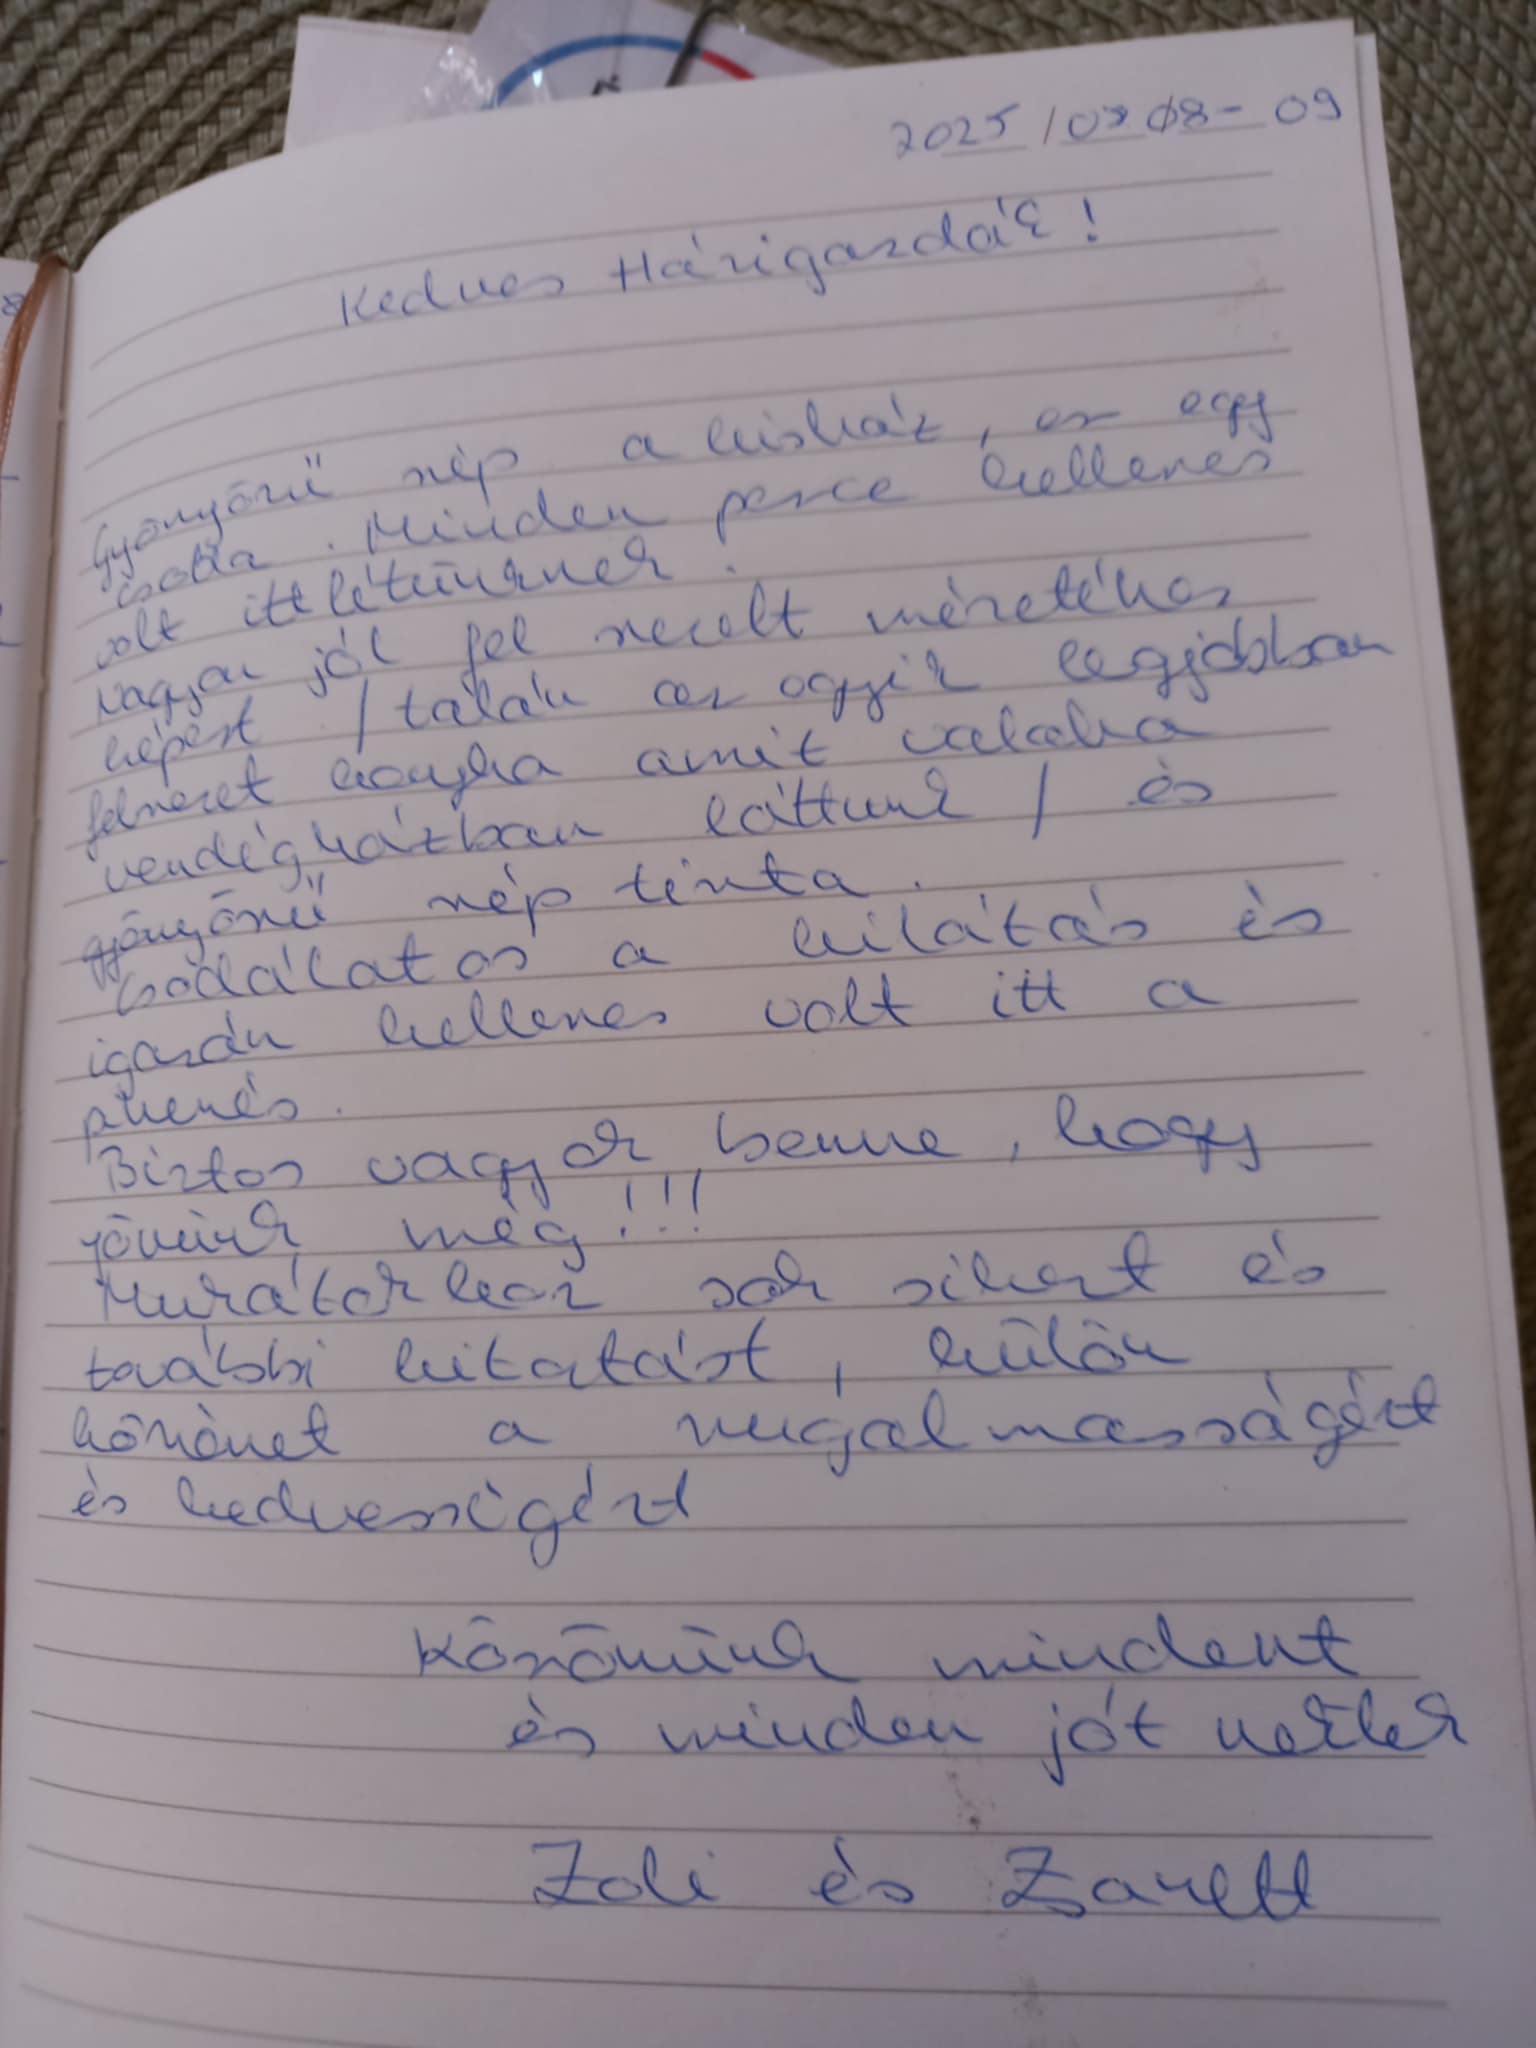 2025/07 08-09
Kedves Házigazdák!
Gyönyörű szép a kisház, ez egy
csoda. Minden perce kellemes
volt ittlétünknek.
Nagyon jól fel szerelt méretéhez
képest / talán az egyik legjobban
felszerelt konyha amit valaha
vendégházban láttunk / és
gyönyörű szép tiszta.
Csodálatos a kilátás és
igazán kellemes volt itt a
pihenés.
Biztos vagyok benne, hogy
jövünk még!!!
sok sikert és
további kitatást, külön
köszönet a rugalmasságért
és kedvességért
Köszönünk mindent
és minden jót nektek
Zoli és